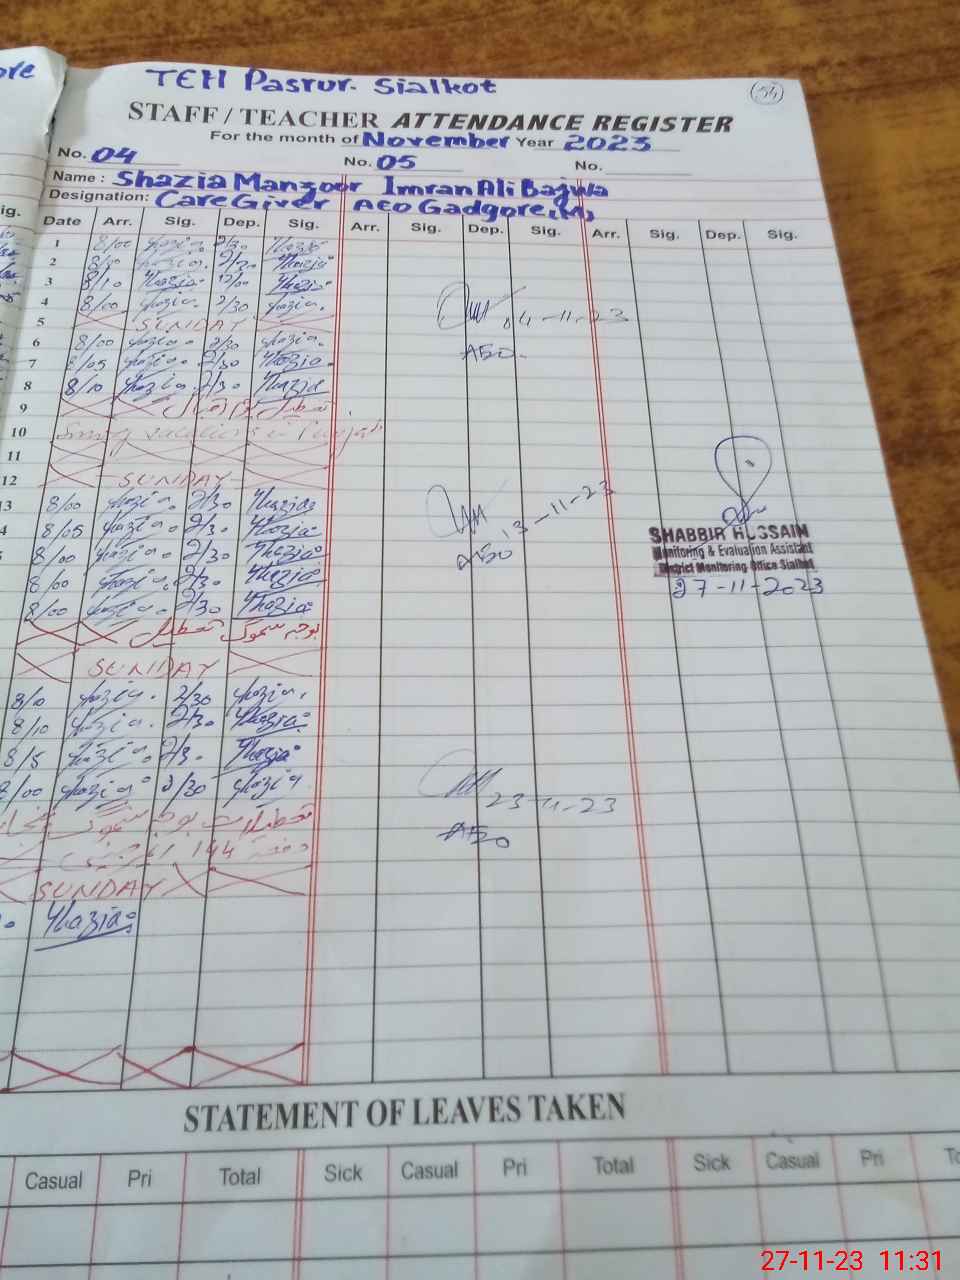 TEH Pasrur. Sialkot
53
STAFF / TEACHER ATTENDANCE REGISTER
For the month of November Year 2023
No. 04 No. 05 No.
Name : Shazia Manzoor Imran Ali Bajwa
Designation: Care Giver AEO Gadgore(M)
Date Arr. Sig. Dep. Sig. Arr. Sig. Dep. Sig. Arr. Sig. Dep. Sig.
1 8/00 Shazia. 2/30 Shazia
2 8/10 Shazia. 2/30 Shazia
3 8/10 Shazia 12/00 Shazia
4 8/00 Shazia. 2/30 Shazia. 04-11-23
5 SUNDAY
6 8/00 Shazia. 2/30 Shazia. AEO.
7 8/05 Shazia. 2/30 Shazia.
8 8/10 Shazia. 2/30 Shazia
9 تعطیل یوم اقبال
10 Smog vacations in Punjab
11
12 SUNDAY
13 8/00 Shazia. 2/30 Shazia 13-11-23
4 8/05 Shazia. 2/30 Shazia AEO
8/00 Shazia. 2/30 Shazia
8/00 Shazia. 2/30 Shazia
8/00 Shazia. 2/30 Shazia
SHABBIR HUSSAIN
Monitoring & Evaluation Assistant
District Monitoring Office Sialkot
27-11-2023
بوجہ سموگ تعطیل
SUNDAY
8/10 Shazia. 2/30 Shazia.
8/10 Shazia. 2/30 Shazia
8/5 Shazia. 2/30 Shazia
8/00 Shazia 2/30 Shazia 23-11-23
تعطیلات بوجہ سموگ
AEO
دفعہ 144
SUNDAY
Shazia
STATEMENT OF LEAVES TAKEN
Casual Pri Total Sick Casual Pri Total Sick Casual Pri
27-11-23 11:31